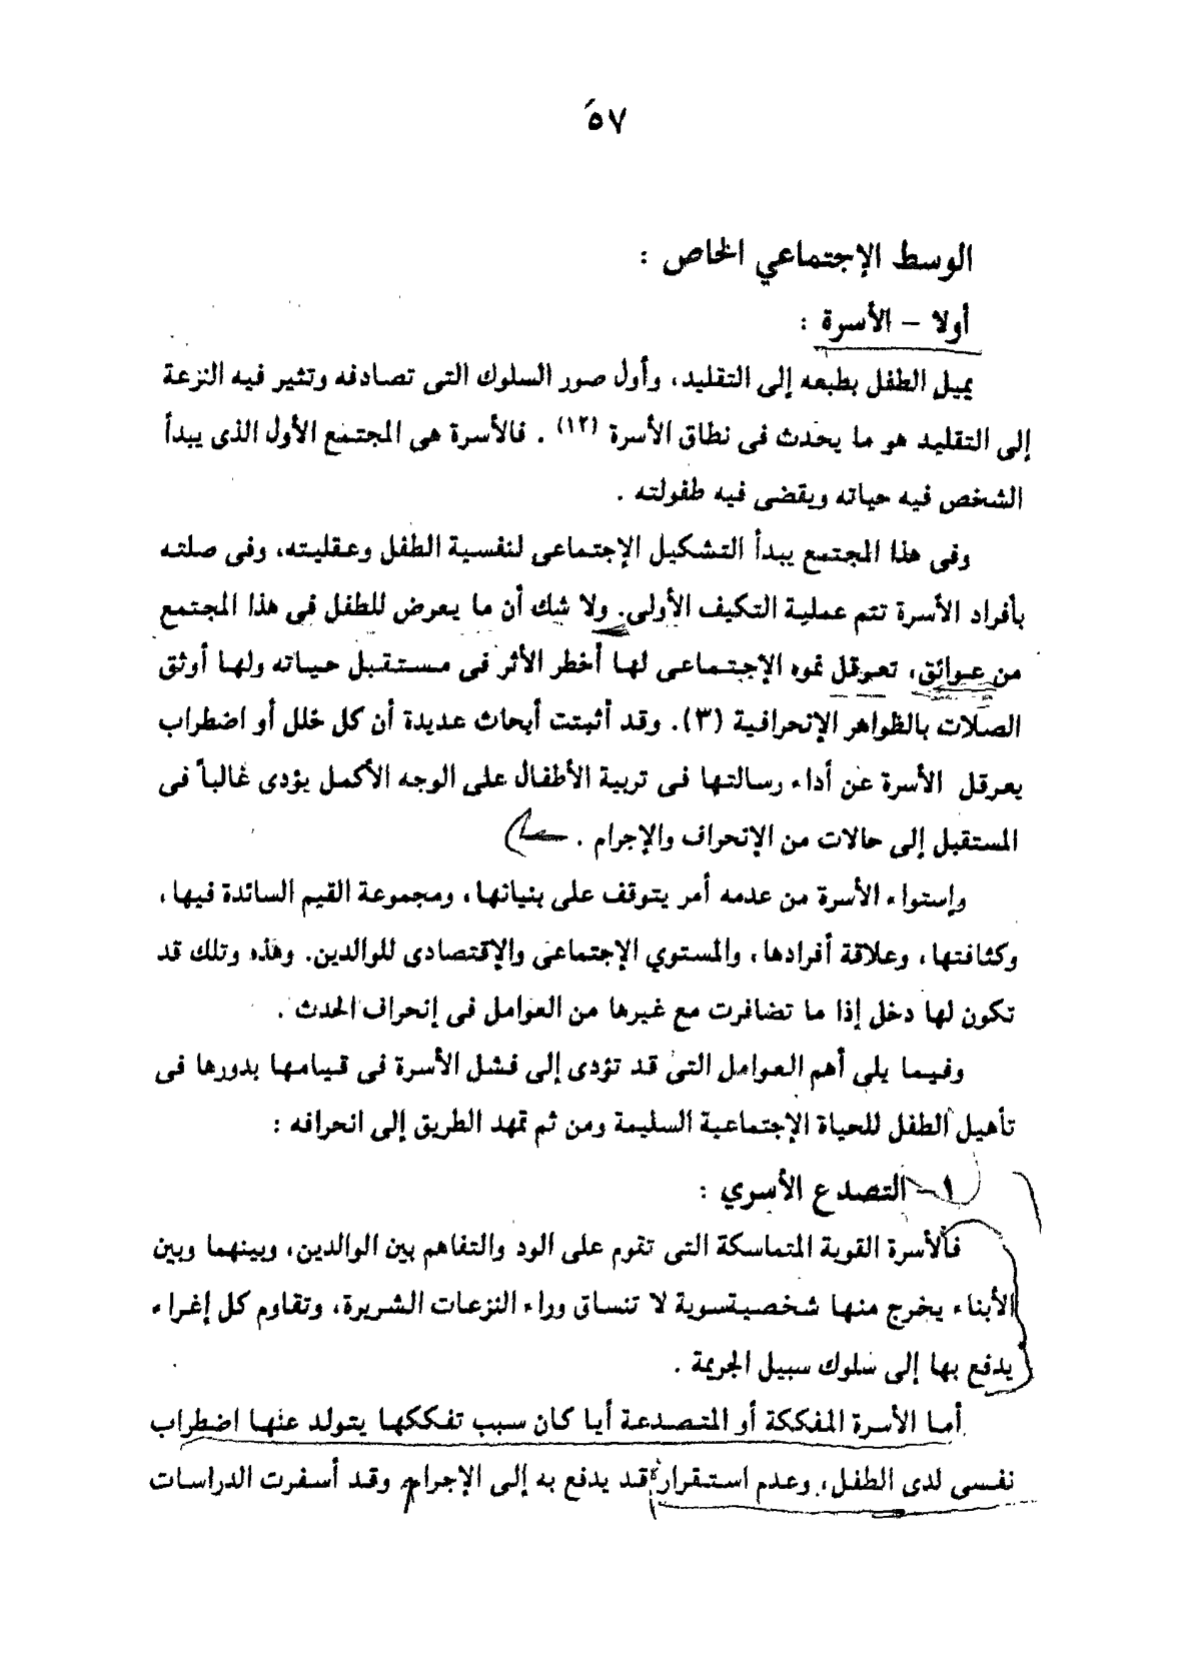 ٥٧
الوسط الإجتماعي الخاص :
أولا – الأسرة :
يميل الطفل بطبعه إلى التقليد، وأول صور السلوك التى تصادفه وتثير فيه النزعة
إلى التقليد هو ما يحدث فى نطاق الأسرة (١٢) . فالأسرة هى المجتمع الأول الذى يبدأ
الشخص فيه حياته ويقضى فيه طفولته .
وفى هذا المجتمع يبدأ التشكيل الإجتماعى لنفسية الطفل وعقليته، وفى صلته
بأفراد الأسرة تتم عملية التكيف الأولى. ولا شك أن ما يعرض للطفل فى هذا المجتمع
من عوائق، تعرقل نموه الإجتماعى لها أخطر الأثر فى مستقبل حياته ولها أوثق
الصلات بالظواهر الإنحرافية (٣). وقد أثبتت أبحاث عديدة أن كل خلل أو اضطراب
يعرقل الأسرة عن أداء رسالتها فى تربية الأطفال على الوجه الأكمل يؤدى غالباً فى
المستقبل إلى حالات من الإنحراف والإجرام .
وإستواء الأسرة من عدمه أمر يتوقف على بنيانها، ومجموعة القيم السائدة فيها،
وكثافتها، وعلاقة أفرادها، والمستوي الإجتماعى والإقتصادى للوالدين. وهذه وتلك قد
تكون لها دخل إذا ما تضافرت مع غيرها من العوامل فى إنحراف الحدث .
وفيما يلى أهم العوامل التى قد تؤدى إلى فشل الأسرة فى قيامها بدورها فى
تأهيل الطفل للحياة الإجتماعية السليمة ومن ثم تمهد الطريق إلى انحرافه :
١ – التصدع الأسري :
فالأسرة القوية المتماسكة التى تقوم على الود والتفاهم بين الوالدين، وبينهما وبين
الأبناء يخرج منها شخصيةسوية لا تنساق وراء النزعات الشريرة، وتقاوم كل إغراء
يدفع بها إلى سلوك سبيل الجريمة .
أما الأسرة المفككة أو المتصدعة أيا كان سبب تفككها يتولد عنها اضطراب
نفسى لدى الطفل، وعدم استقرار قد يدفع به إلى الإجرام وقد أسفرت الدراسات